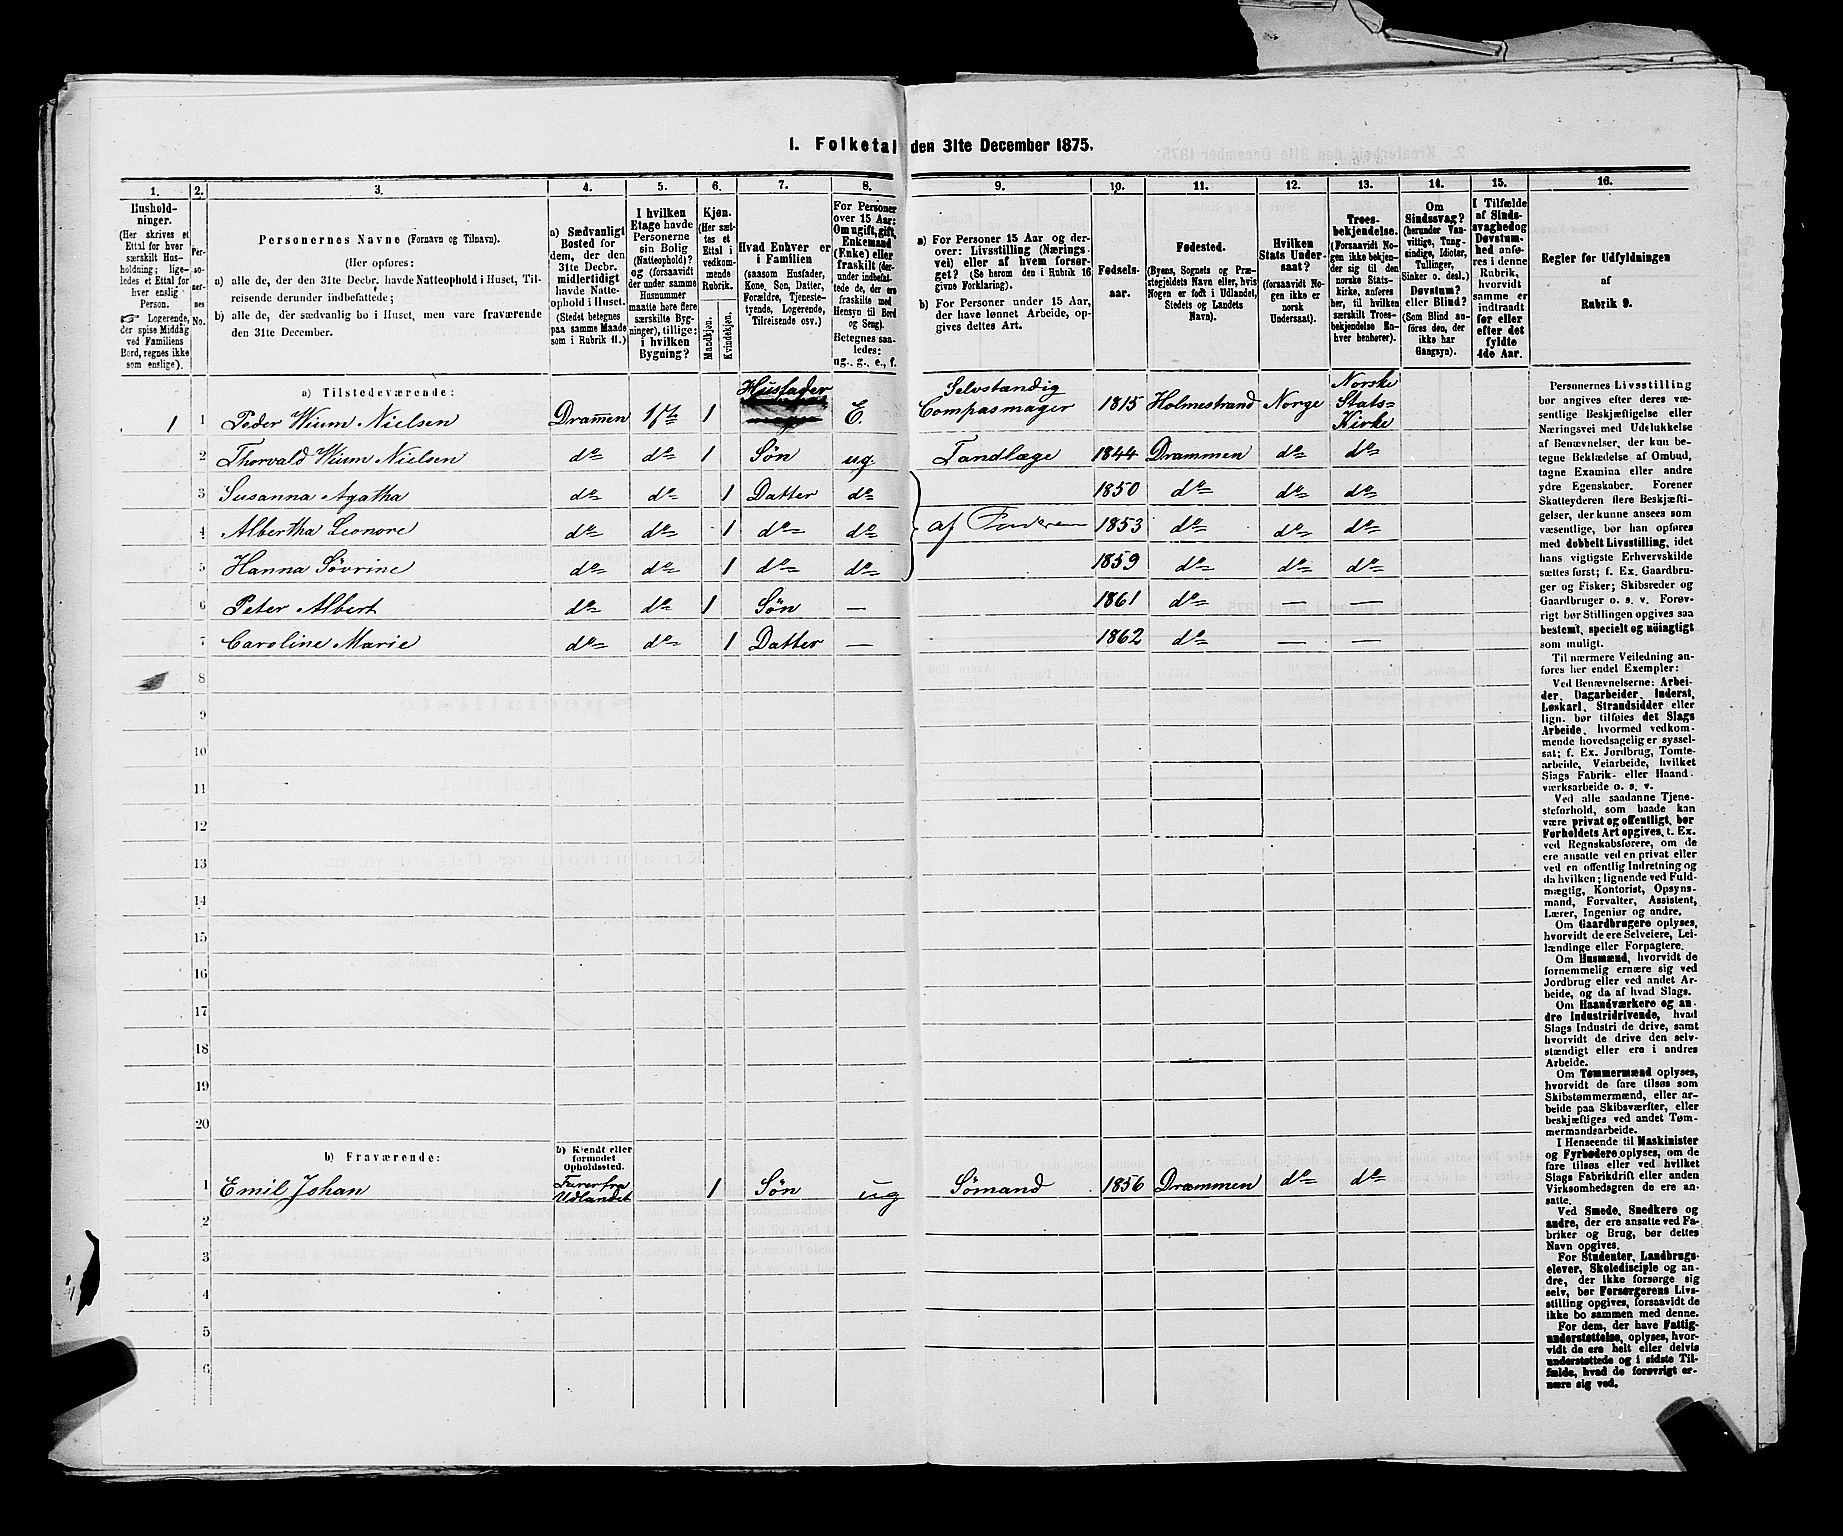 1. Folketal den 31te December 1875.
1. 2. 3. 4. 5. 6. 7. 8. 9. 10. 11. 12. 13. 14. 15. 16.
Hushold-
ninger.
(Her skrives et
Ettal for hver
særskilt Hus-
holdning; lige-
ledes et Ettal for
hver enslig
Person.
☞ Logerende,
der spise Middag
ved Familiens
Bord, regnes ikke
som enslige).
Per-
so-
ner-
nes
No.
Personernes Navne (Fornavn og Tilnavn).
(Her opføres:
a) alle de, der den 31te Decbr. havde Natteophold i Huset, Til-
reisende derunder indbefattede;
b) alle de, der sædvanlig bo i Huset, men vare fraværende
den 31te December.
a) Sædvanligt
Bosted for
dem, der den
31te Decbr.
midlertidigt
havde Natte-
ophold i Huset.
(Stedet betegnes
paa samme Maade
som i Rubrik 11.)
I hvilken
Etage havde
Personerne
sin Bolig
(Natteophold)?
og (forsaavidt
der under samme
Husnummer
maatte høre flere
særskilte Byg-
ninger), tillige:
i hvilken
Bygning?
Kjøn.
(Her sæt-
tes et
Ettal i
vedkom-
mende
Rubrik.
Mandkjøn.
Kvindekjøn.
Hvad Enhver er
i Familien
(saasom Husfader,
Kone, Søn, Datter,
Forældre, Tjeneste-
tyende, Logerende,
Tilreisende osv.)
For Personer
over 15 Aar:
Om ugift, gift,
Enkemand
(Enke) eller
fraskilt (der-
under indbefat-
tede de, der ere
fraskilte med
Hensyn til Bord
og Seng).
Betegnes saa-
ledes:
ug., g., e., f.
a) For Personer 15 Aar og der-
over: Livsstilling (Nærings-
vei) eller af hvem forsør-
get? (Se herom den i Rubrik 16
givne Forklaring).
b) For Personer under 15 Aar,
der have lønnet Arbeide, op-
gives dettes Art.
Fødsels-
aar.
Fødested.
(Byens, Sognets og Præ-
stegjeldets Navn eller, hvis
Nogen er født i Udlandet,
Stedets og Landets
Navn).
Hvilken
Stats Under-
saat?
(forsaavidt No-
gen ikke er
norsk
Undersaat).
Troes-
bekjendelse.
(Forsaavidt No-
gen ikke bekjen-
der sig til den
norske Stats-
kirke, anføres
her, til hvilken
særskilt Troes-
bekjendelse En-
hver henhører).
Om
Sindssvag?
(herunder Van-
vittige, Tung-
sindige, Idioter,
Tullinger,
Sinker o. desl.)
Døvstum?
eller Blind?
(Som Blind an-
føres den, der
ikke har
Gangsyn).
I Tilfælde
af Sinds-
svaghed og
Døvstum-
hed anfø-
res i denne
Rubrik,
hvorvidt
samme er
indtraadt
før eller
efter det
fyldte
4de Aar.
Regler for Udfyldningen
af
Rubrik 9.
a) Tilstedeværende:
1 1 Peder Wium Nielsen Drammen 1ste 1 Husfader E. Selvstændig Compasmager 1815 Holmestrand Norge Norske Stats= Kirke
2 Thorvald Wium Nielsen do do 1 Søn ug. Tandlæge 1844 Drammen do do
3 Susanna Agatha do do 1 Datter do 1850 do do do
4 Albertha Leonore do do 1 do do af Faderen 1853 do do do
5 Hanna Søvrine do do 1 do do 1859 do do do
6 Peter Albert do do 1 Søn — 1861 do — —
7 Caroline Marie do do 1 Datter — 1862 do — —
8
9
10
11
12
13
14
15
16
17
18
19
20
b) Fraværende:
b) Kjendt eller
formodet
Opholdssted.
1 Emil Johan Farer fra Udlandet 1 Søn ug Sømand 1856 Drammen do do
2
3
4
5
6
Personernes Livsstilling
bør angives efter deres væ-
sentlige Beskjæftigelse eller
Næringsvei med Udelukkelse
af Benævnelser, der kun be-
tegne Beklædelse af Ombud,
tagne Examina eller andre
ydre Egenskaber. Forener
Skatteyderen flere Beskjæfti-
gelser, der kunne ansees som
væsentlige, bør han opføres
med dobbelt Livsstilling, idet
hans vigtigste Erhvervskilde
sættes først; f. Ex. Gaardbru-
ger og Fisker; Skibsreder og
Gaardbruger o. s. v. Forøv-
rigt bør Stillingen opgives saa
bestemt, specielt og nöiagtigt
som muligt.
Til nærmere Veiledning an-
føres her endel Exempler:
Ved Benævnelserne: Arbei-
der, Dagarbeider, Inderst,
Løskarl, Strandsidder eller
lign. bør tilføies det Slags
Arbeide, hvormed vedkom-
mende hovedsagelig er syssel-
sat; f. Ex. Jordbrug, Tomte-
arbeide, Veiarbeide, hvilket
Slags Fabrik- eller Haand-
værksarbeide o. s. v.
Ved alle saadanne Tjene-
steforhold, som baade kan
være privat og offentligt, bør
Forholdets Art opgives, t. Ex.
ved Regnskabsførere, om de
ere ansatte ved en privat eller
ved en offentlig Indretning og
da hvilken; lignende ved Fuld-
mægtig, Kontorist, Opsyns-
mand, Forvalter, Assistent,
Lærer, Ingeniør og andre.
Om Gaardbrugere oplyses,
hvorvidt de ere Selveiere, Lei-
lændinge eller Forpagtere.
Om Husmænd, hvorvidt de
fornemmelig ernære sig ved
Jordbrug eller ved andet Ar-
beide, og da af hvad Slags.
Om Haandværkere og an-
dre Industridrivende, hvad
Slags Industri de drive, samt
hvorvidt de drive den selv-
stændigt eller ere i andres
Arbeide.
Om Tømmermænd oplyses,
hvorvidt de fare tilsøs som
Skibstømmermænd, eller ar-
beide paa Skibsværfter, eller
beskjæftiges ved andet Tøm-
mermandsarbeide.
I Henseende til Maskinister
og Fyrbødere oplyses, om de
fare tilsøs eller ved hvilket
Slags Fabrikdrift eller anden
Virksomhedsgren de ere an-
satte.
Ved Smede, Snedkere og
andre, der ere ansatte ved Fa-
briker og Brug, bør dettes
Navn opgives.
For Studenter, Landbrugs-
elever, Skoledisciple og an-
dre, der ikke forsørge sig
selv, bør Forsørgerens Livs-
stilling opgives, forsaavidt de
ikke bo sammen med denne.
For dem, der have Fattig-
understøttelse, oplyses, hvor-
vidt de ere helt eller delvis
understøttede og i sidste Til-
fælde, hvad de forøvrigt er-
nære sig ved.